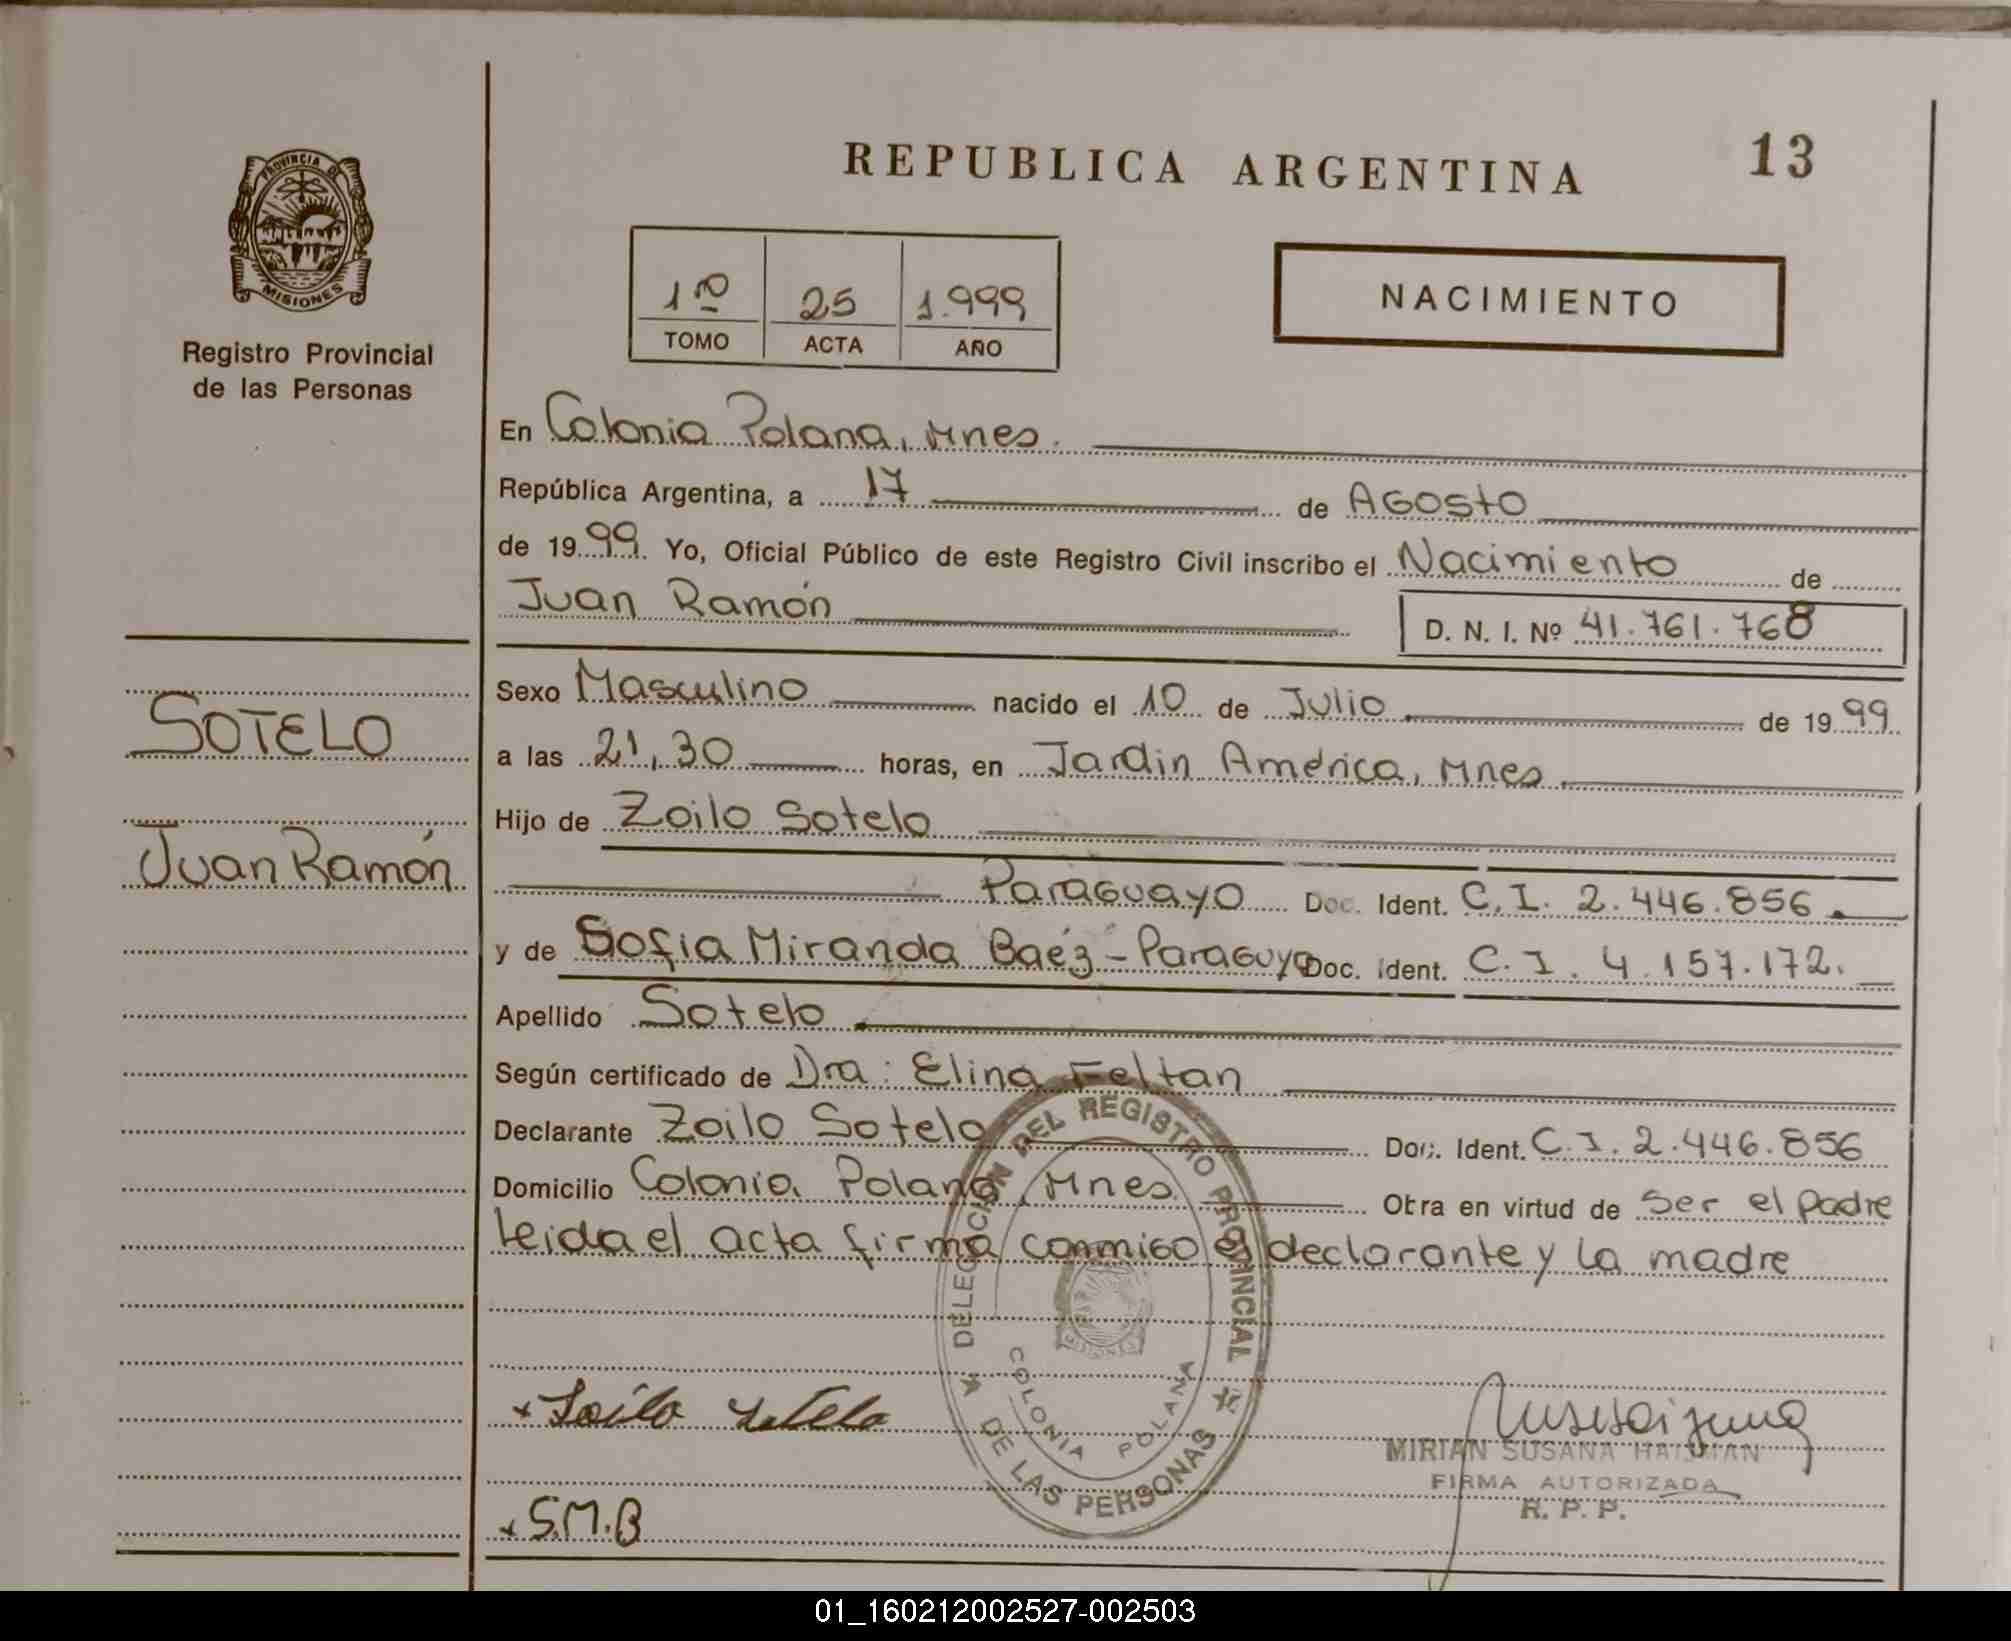 REPUBLICA ARGENTINA 13
PROVINCIA DE MISIONES
Registro Provincial
de las Personas
1ro 25 1.999
TOMO ACTA AÑO
NACIMIENTO
En Colonia Polana, Mnes.
República Argentina, a 17 de Agosto
de 1999 Yo, Oficial Público de este Registro Civil inscribo el Nacimiento de
Juan Ramón D. N. I. Nº 41.761.768
SOTELO
Juan Ramón
Sexo Masculino nacido el 10 de Julio de 1999
a las 21,30 horas, en Jardin América, Mnes.
Hijo de Zoilo Sotelo
Paraguayo Doc. Ident. C.I. 2.446.856.
y de Sofia Miranda Baéz - Paraguya Doc. Ident. C.I. 4.157.172.
Apellido Sotelo
Según certificado de Dra: Elina Feltan
Declarante Zoilo Sotelo Doc. Ident. C.I. 2.446.856
Domicilio Colonia Polana, Mnes. Obra en virtud de ser el padre
Leida el acta firma conmigo el declarante y la madre
DELEGACION DEL REGISTRO PROVINCIAL
DE LAS PERSONAS
COLONIA POLANA
MISIONES
x Zoilo Sotelo
MIRIAN SUSANA HAISMAN
FIRMA AUTORIZADA
R. P. P.
x S.M.B
01_160212002527-002503